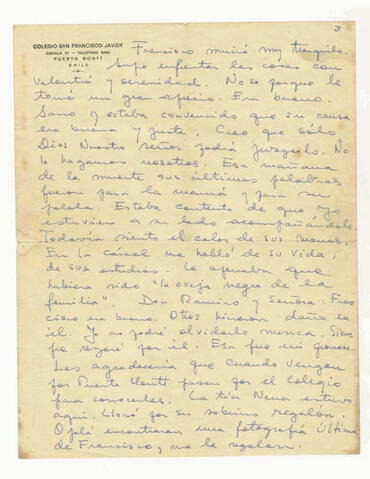 3
COLEGIO SAN FRANCISCO JAVIER
PUERTO MONTT
CHILE
Francisco murió muy tranquilo.
Supo enfrentar las cosas con
valentía y serenidad. No se porque le
tomé un gran afecto. Era bueno.
Sano y estaba convencido que su causa
era buena y justa. Creo que sólo
Dios Nuestro Señor podrá juzgarlo. No
lo hagamos nosotros. Esa mañana
de la muerte sus últimas palabras
fueron para la mamá y para su
polola. Estaba contento de que yo
estuviera a su lado acompañándole.
Todavía siento el calor de sus manos.
En la cárcel me habló de su vida,
de sus estudios. Le apenaba que
hubiera sido "la oveja negra de la
familia". Don Ramiro y Señora: Fran
cisco era bueno. Otros hicieron daño en
él. Yo no podré olvidarlo nunca. Siem
pre rezaré por él. Esa fue mi promesa.
Les agradecería que cuando vengan
por Puerto Montt pasen por el Colegio
para conocerles. La tía Nena estuvo
aquí. Lloró por su sobrino regalón.
Ojalá encontraran una fotografía última
de Francisco y me la regalan.